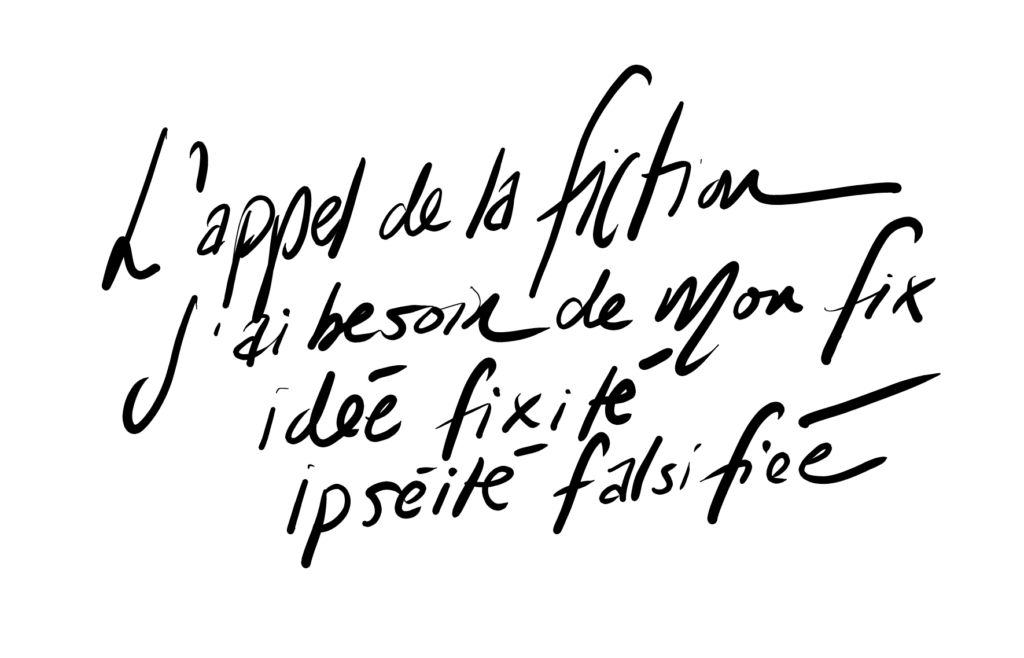 L'appel de la fiction
j'ai besoin de mon fix
idée fixité
ipséité falsifiée